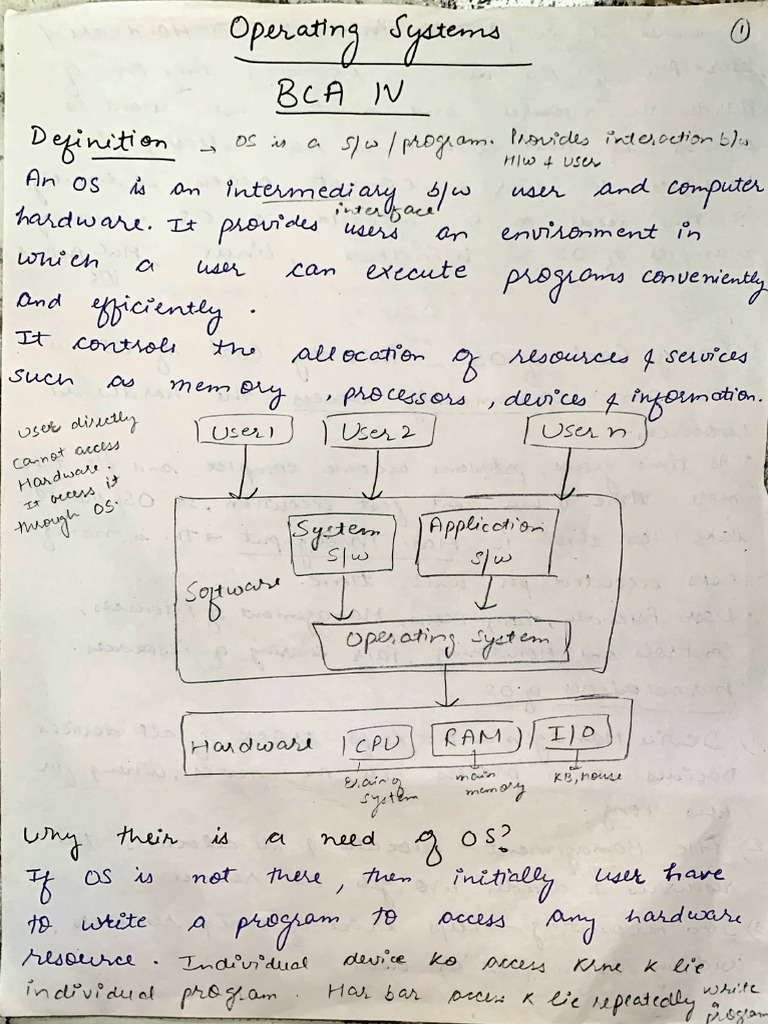 Operating Systems
1
BCA IV
Definition → OS is a s/w / program. Provides interaction b/w
H/w & user
An OS is an intermediary b/w user and computer
interface
hardware. It provides users an environment in
which a user can execute programs conveniently
and efficiently.
It controls the allocation of resources & services
such as memory, processors, devices & information.
User directly
cannot access
Hardware.
It access it
through OS.
User 1 User 2 User n
System
S/w
Application
S/w
Software
Operating System
Hardware CPU RAM I/O
Brain of
system
main
memory
KB, mouse
Why their is a need of OS?
If OS is not there, then initially user have
to write a program to access any hardware
resource. Individual device ko access krne k lie
individual program. Har bar access k lie repeatedly write
a
program